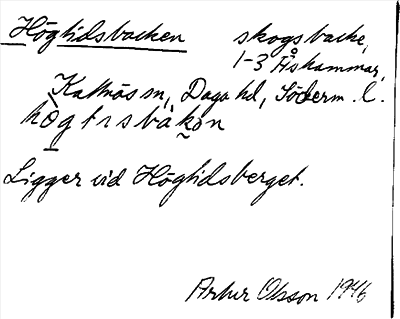 Högtidsbacken skogsbacke,
1-3 Åskammar,
Kattnäs sn, Daga hd, Söderm. l.
hö̀gtɪsbàkon
Ligger vid Högtidsberget.
Artur Olsson 1946